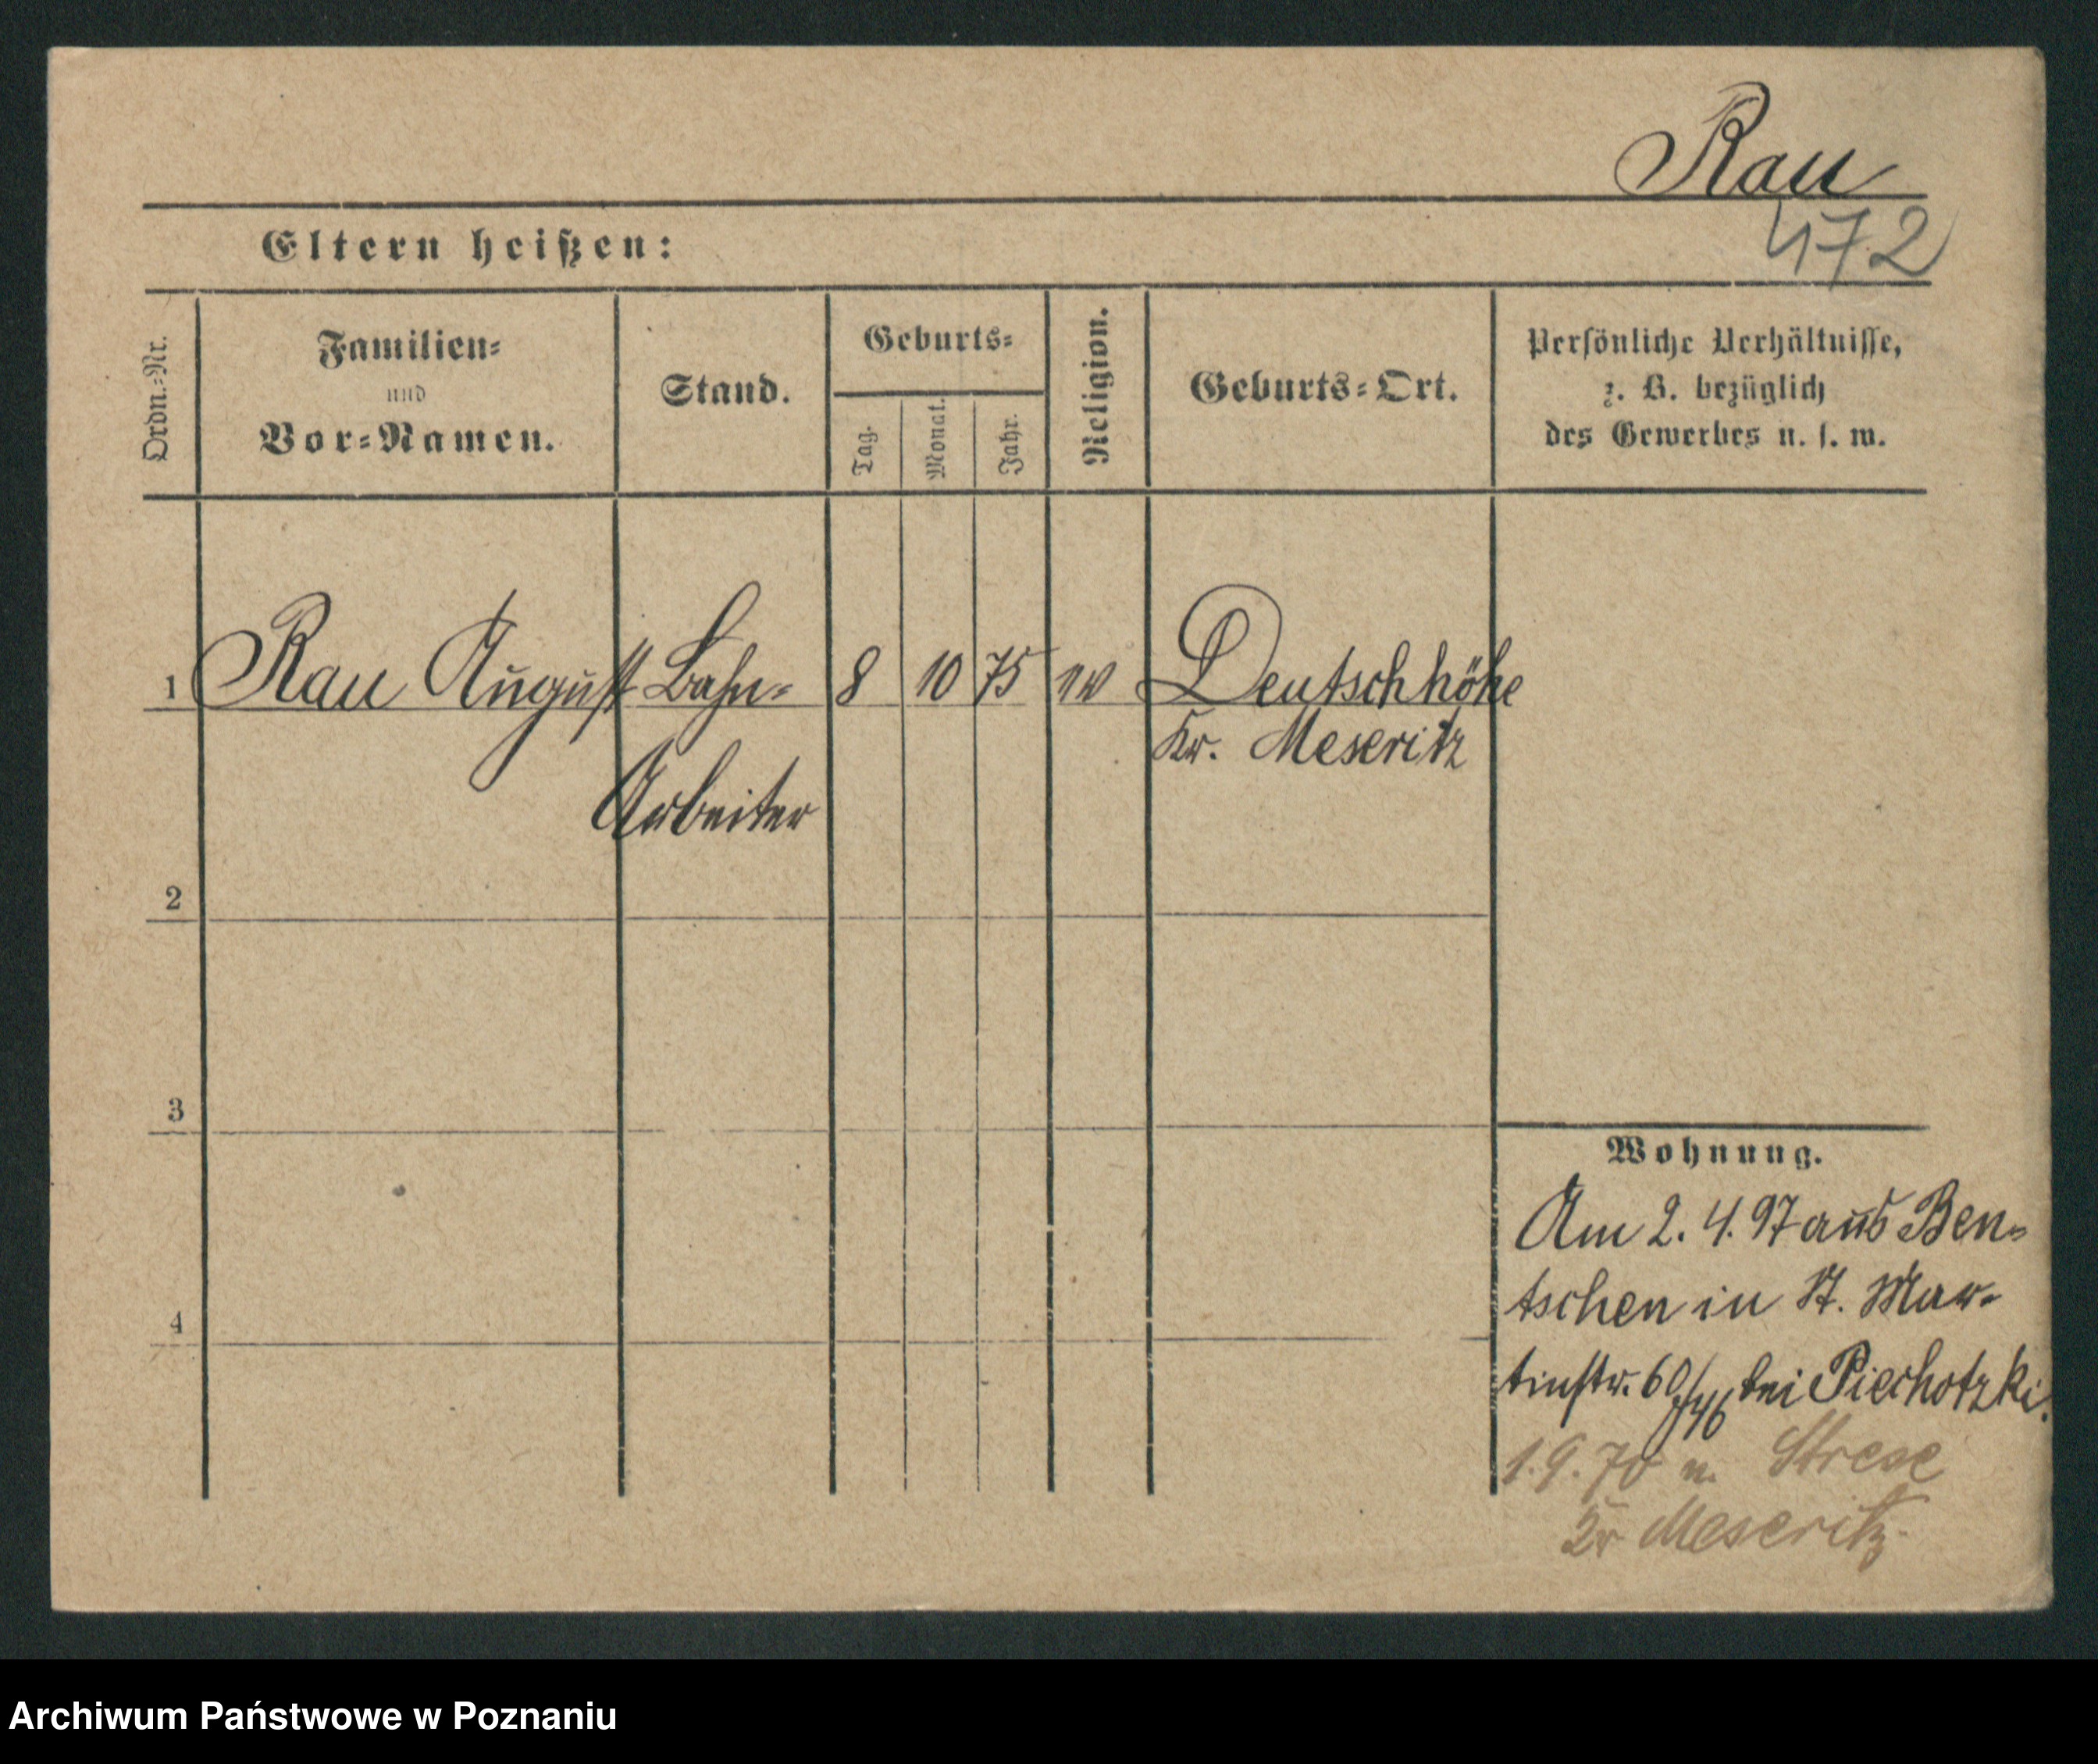 Rau
472
Eltern heißen:
Ordn.-Nr.
Familien-
und
Vor-Namen.
Stand.
Geburts-
Tag.
Monat.
Jahr.
Religion.
Geburts-Ort.
Persönliche Verhältnisse,
z. B. bezüglich
des Gewerbes u. s. w.
1 Rau August Bahn- 8 10 75 ev Deutschhöhe
Kr. Meseritz
Arbeiter
2
3
4
Wohnung.
Am 2. 4. 97 aus Ben-
tschen in St. Mar-
tinstr. 60/ bei Piechotzki.
1.9. n. Strese
Kr Meseritz
Archiwum Państwowe w Poznaniu